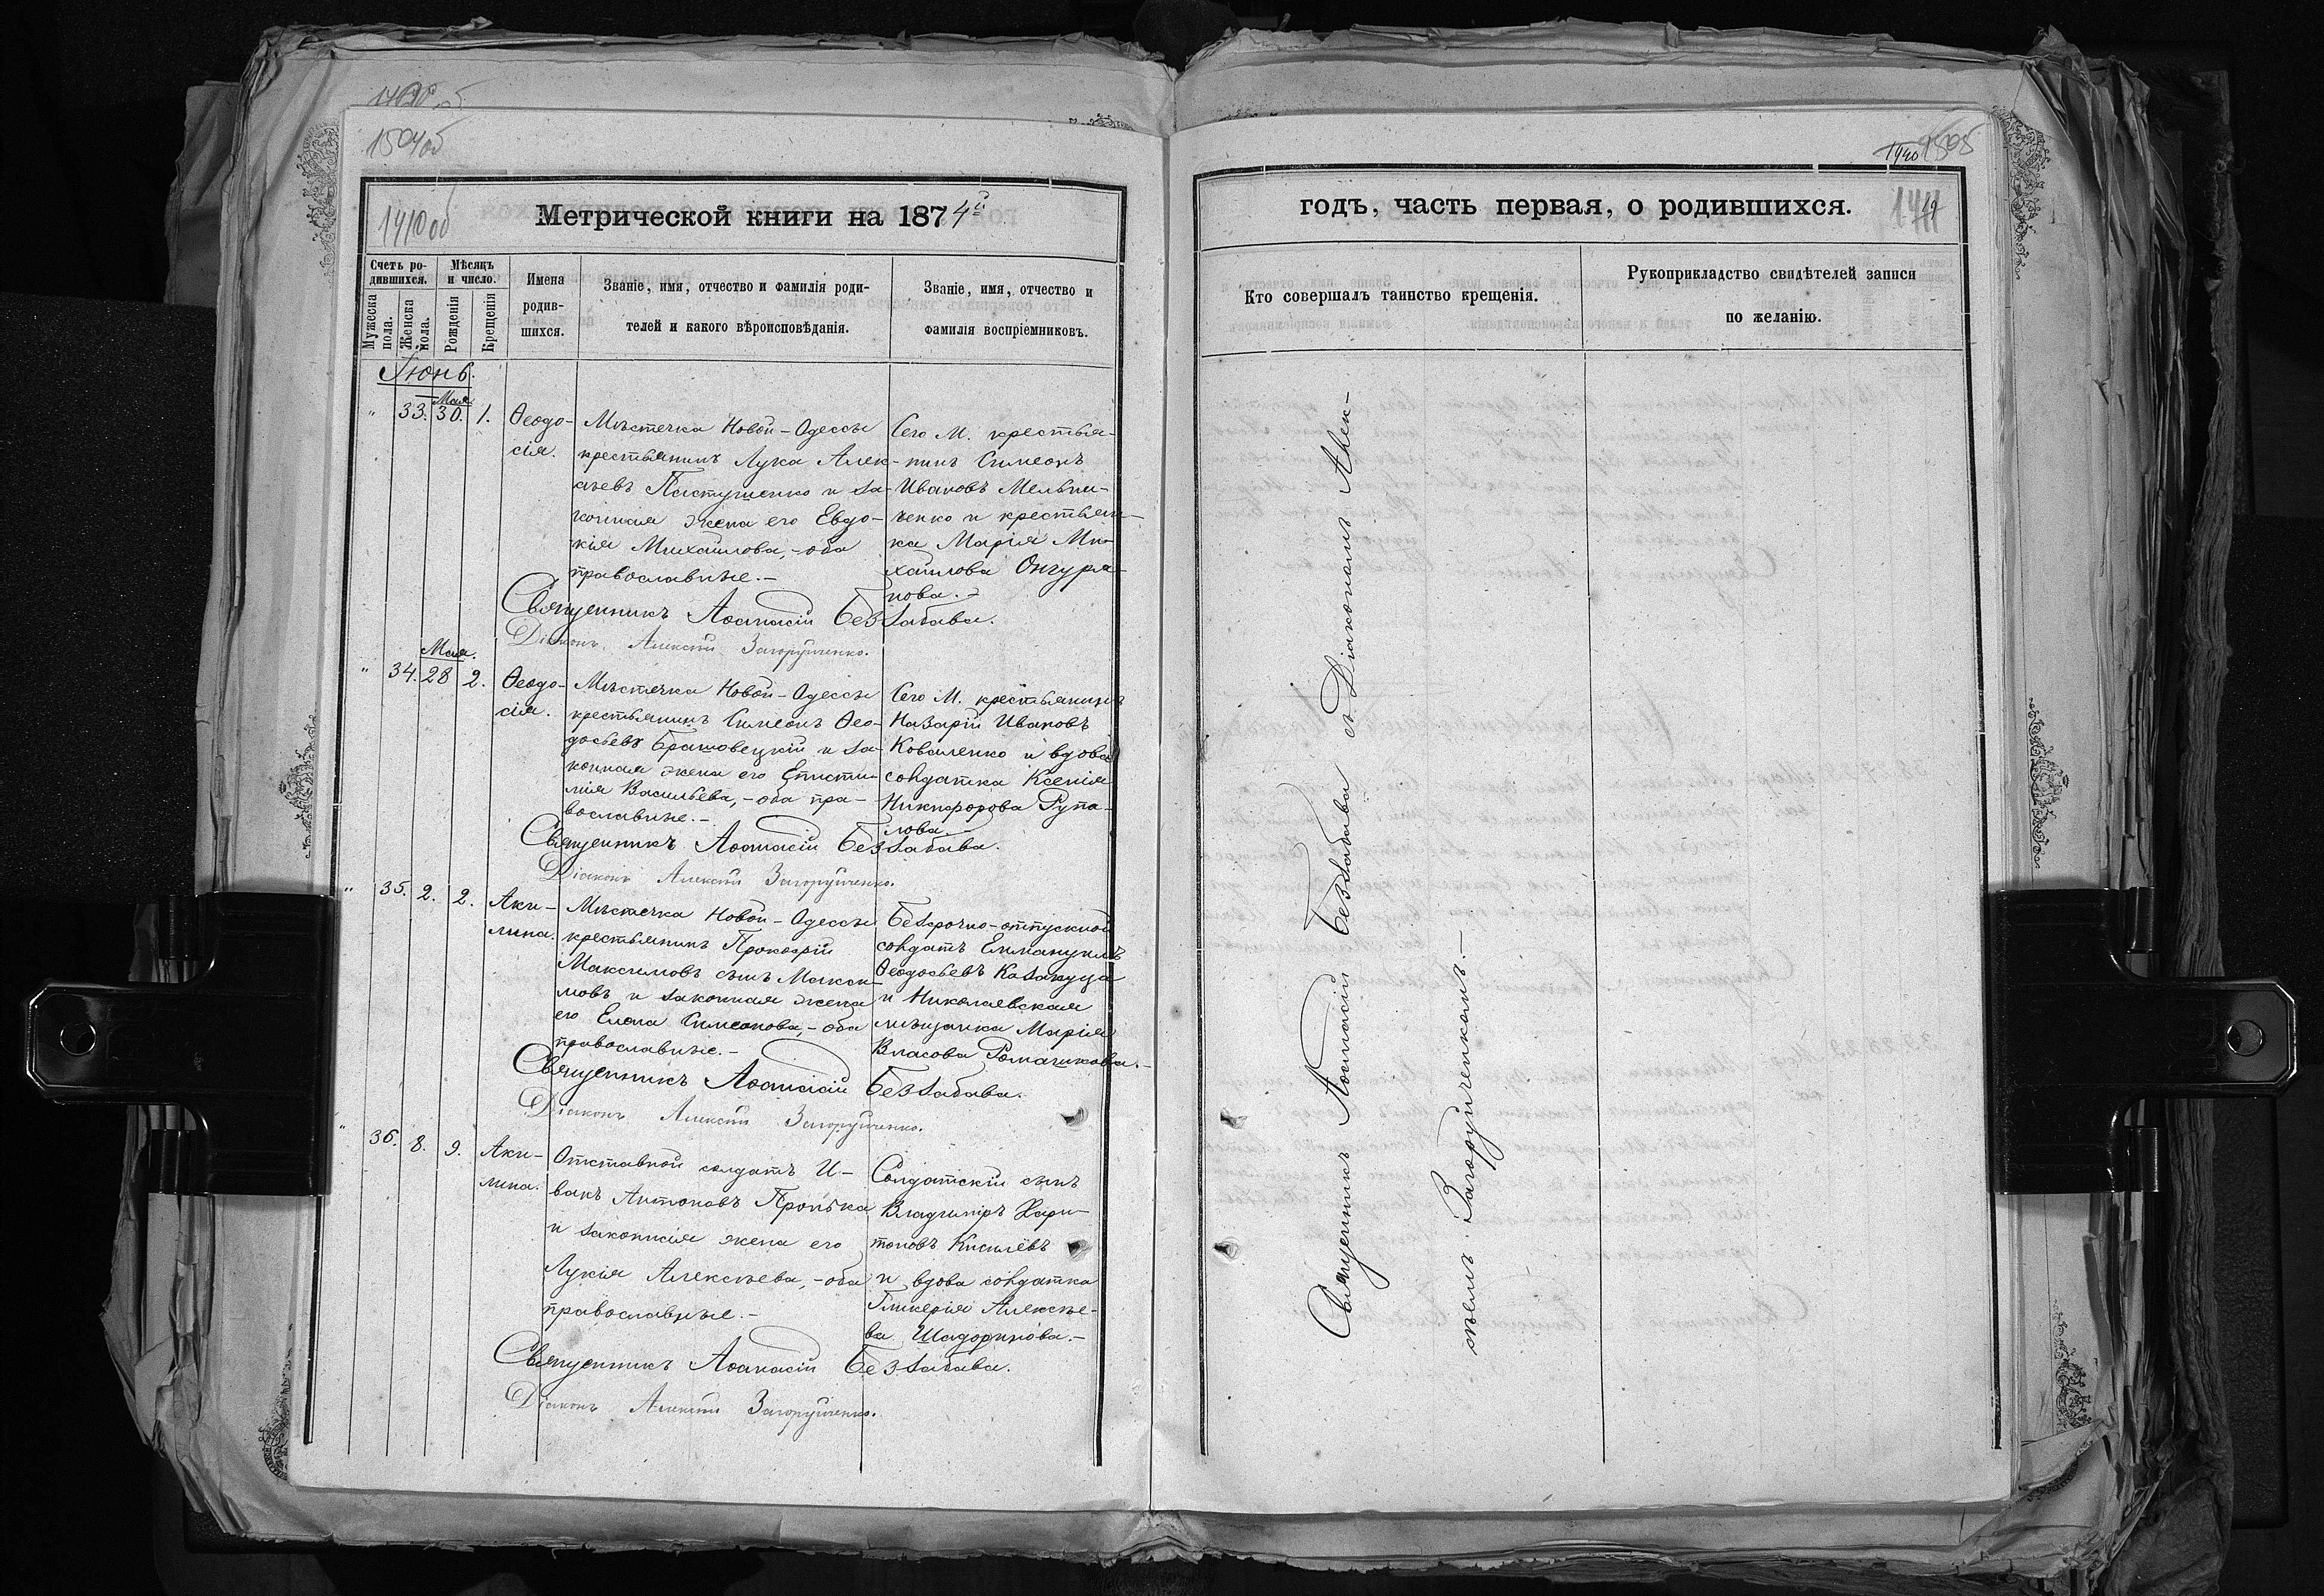 1504об
1410об
Метрической книги на 1874й
Счетъ родившихся.
Мѣсяцъ и число.
Мужеска пола.
Женска пола.
Рожденія
Крещенія
Имена родившихся.
Званіе, имя, отчество и фамилія родителей и какого вѣроисповѣданія.
Званіе, имя, отчество и фамилія воспріемниковъ.
Іюнь.
" 33. Мая 30. 1.
Ѳеодо-
сія.
Мѣстечка Новой-Одессы
крестьянинъ Лука Алек-
сѣевъ Пастушенко и за-
конная жена его Евдо-
кія Михайлова,-оба
православные.-
Сего М. крестья-
нинъ Симеонъ
Ивановъ Мельни-
ченко и крестьян-
ка Марія Ми-
хайлова Онгуря-
нова.-
Священникъ Аѳанасій Беззабава.
Діаконъ Алексѣй Загоруйченко.
" 34. Мая. 28 2.
Ѳеодо-
сія.
Мѣстечка Новой-Одессы
крестьянинъ Симеонъ Ѳео-
досьевъ Брашовецкій и за-
конная жена его Еписти-
мія Васильева,-оба пра-
вославные.-
Сего М. крестьянинъ
Назарій Ивановъ
Коваленко и вдова
солдатка Ксенія
Никифорова Рупа-
лова.
Священникъ Аѳанасій Беззабава.
Діаконъ Алексѣй Загоруйченко.
" 35. 2. 2.
Аки-
лина.
Мѣстечка Новой-Одессы
крестьянинъ Прокофій
Максимовъ сынъ Макси-
мовъ и законная жена
его Елена Симеонова,-оба
православные.-
Безсрочно-отпускной
солдатъ Еммануилъ
Ѳеодосьевъ Казануца
и Николаевская
мѣщанка Марія
Власова Ромашкова.-
Священникъ Аѳанасій Беззабава.
Діаконъ Алексѣй Загоруйченко.
" 36. 8. 9.
Аки-
лина.
Отставной солдатъ И-
ванъ Антоновъ Пронька
и законная жена его
Лукія Алексѣева,-оба
православные.-
Солдатскій сынъ
Владиміръ Хари-
тоновъ Кисилёвъ
и вдова солдатка
Гликерія Алексѣе-
ва Шадоринова.-
Священникъ Аѳанасій Беззабава.
Діаконъ Алексѣй Загоруйченко.
1505
годъ, часть первая, о родившихся.
Кто совершалъ таинство крещенія.
Рукоприкладство свидѣтелей записи по желанію.
Священникъ Аѳанасій Беззабава съ Діакономъ Алек-
сѣемъ Загоруйченкомъ.-